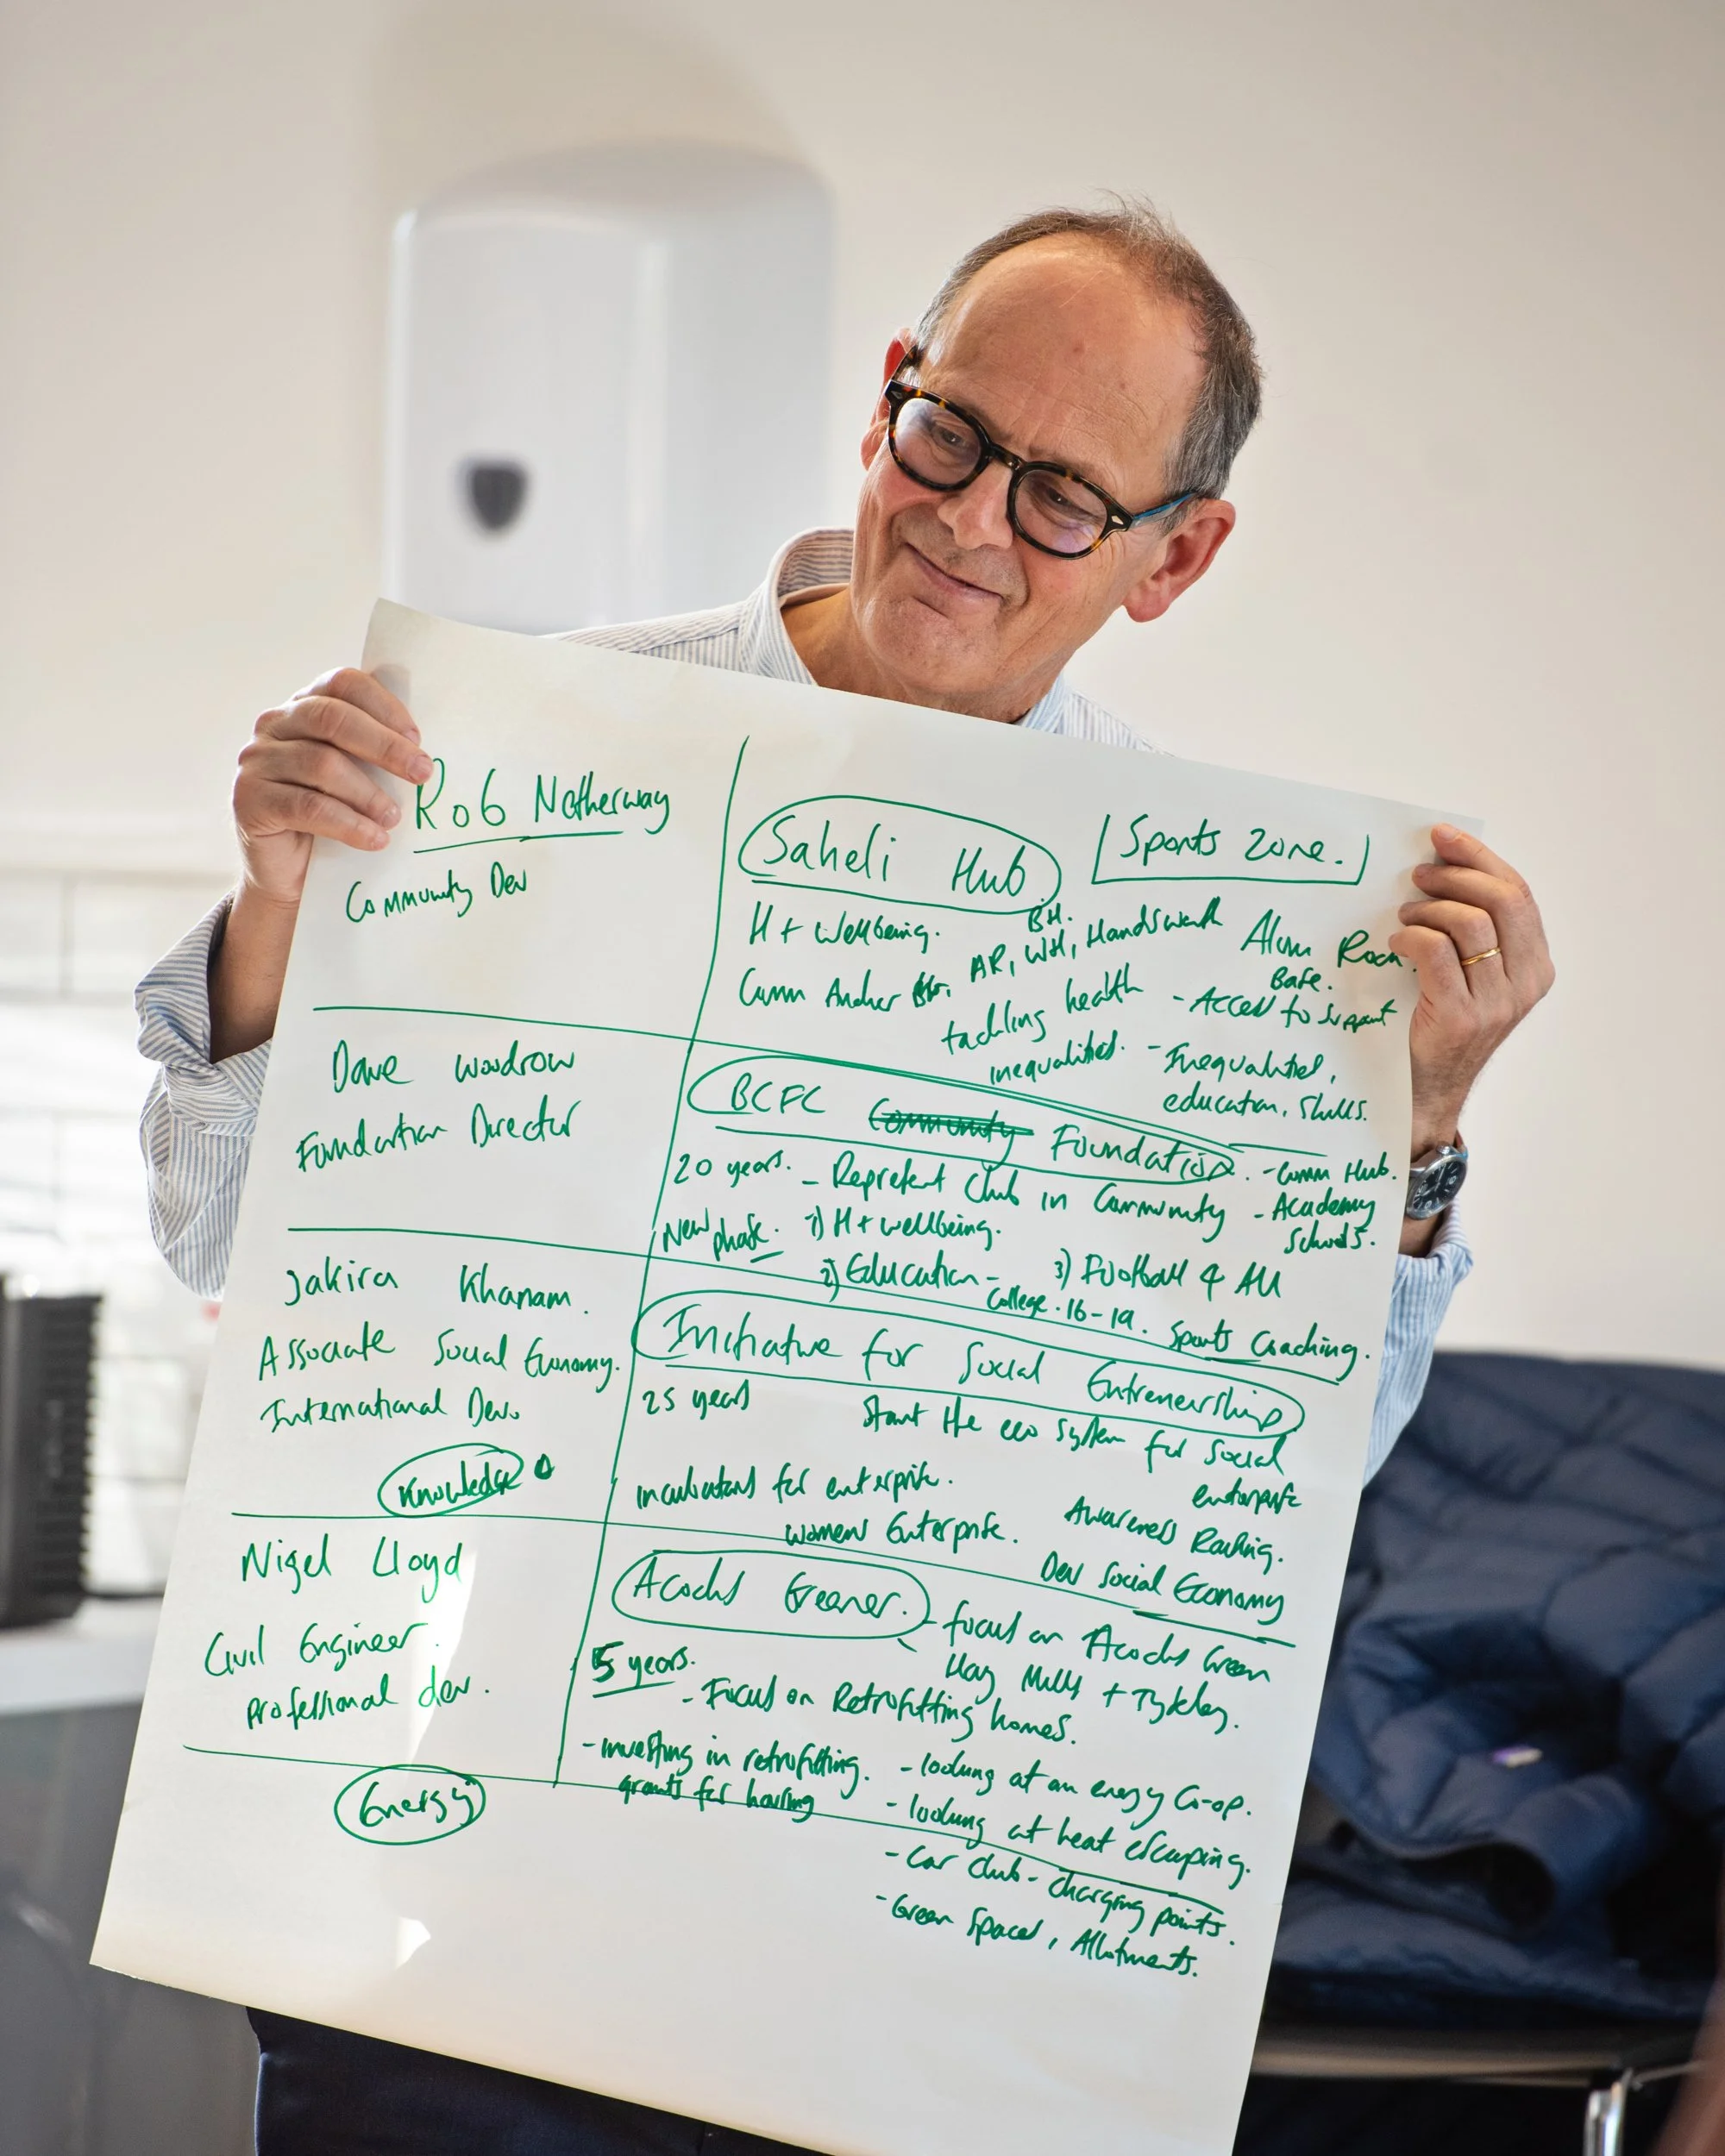 Rob Netherway
Community Dev
Saheli Hub
Sports Zone.
H + Wellbeing.
BH.
AR, WH, Handsworth
Comm Anchor
tackling health
inequalities.
Alum Rock
Base.
- Access to Support
- Inequalities,
education, skills.
Dave Woodrow
Foundation Director
BCFC Community Foundation.
20 years. - Represent Club in Community
- Comm Hub.
- Academy
Schools.
New phase. 1) H + wellbeing.
2) Education -
College. 16-19.
3) Football 4 All
Sports Coaching.
Jakira Khanam.
Associate Social Economy.
International Dev.
Knowledge
Initiative for Social Entreneurship
25 years
Start the eco system for Social
enterprise
incubators for enterprise.
women's Enterprise.
Awareness Raising.
Dev Social Economy
Nigel Lloyd
Civil Engineer.
professional dev.
Energy
Acocks Greener.
- focus on Acocks Green
Hay Mills + Tyseley.
5 years.
- Focus on Retrofitting homes.
- investing in retrofitting.
grants for housing
- looking at an energy Co-op.
- looking at heat escaping.
- Car club - charging points.
- Green Spaces, Allotments.